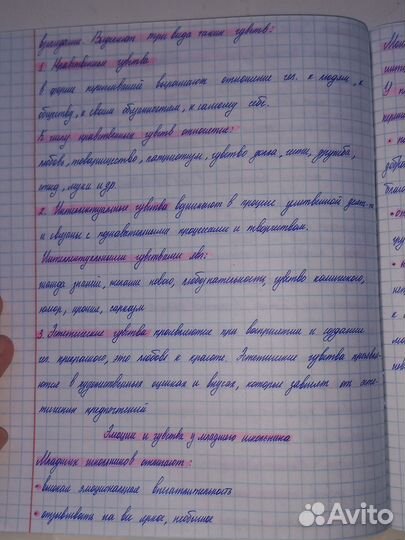 Выделяют три вида таких чувств:
1. Нравственные чувства
в форме переживаний выражают отношение чел. к людям, к
обществу, к своим обязанностям, к самому себе.
К числу нравственных чувств относится:
любовь, товарищество, патриотизм, чувство долга, дружба,
стыд, муки и др.
2. Интеллектуальные чувства возникают в процессе умственной деят-ти
и связаны с познавательными процессами и творчеством.
Интеллектуальными чувствами явл:
жажда знаний, искание нового, любознательность, чувство комического,
юмор, ирония, сарказм
3. Эстетические чувства проявляются при восприятии и создании
чел. прекрасного, это любовь к красоте. Эстетические чувства прояв-
ются в художественных оценках и вкусах, которые зависят от эсте-
тических предпочтений
Эмоции и чувства у младшего школьника
Младших школьников отличает:
• высокая эмоциональная впечатлительность
• отзывчивость на все яркое, необычное
Avito